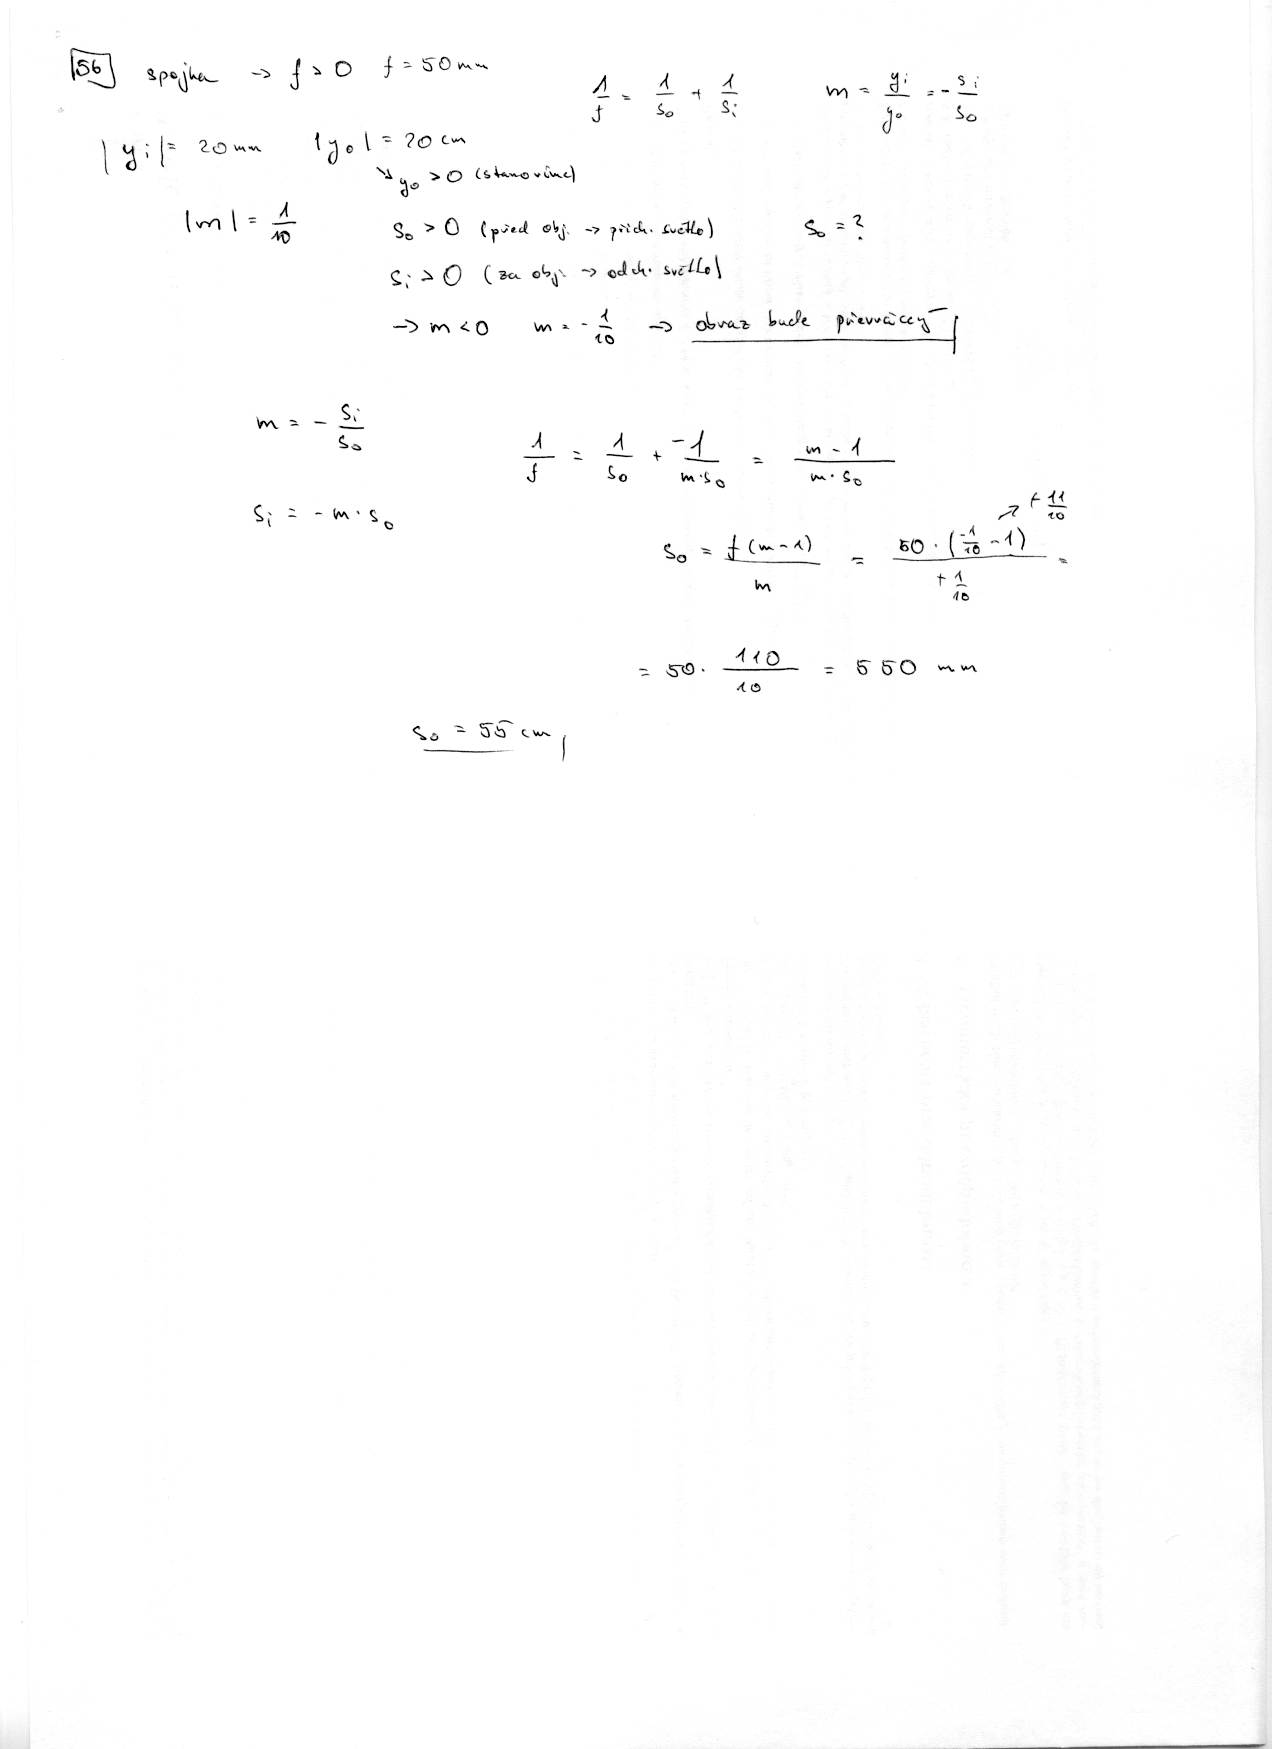 56 spojka → f > 0 f = 50 mm
1/f = 1/s₀ + 1/sᵢ m = yᵢ/y₀ = - sᵢ/s₀
|yᵢ| = 20 mm |y₀| = 20 cm
↘ y₀ > 0 (stanovíme)
|m| = 1/10 s₀ > 0 (před obj. → přích. světlo) s₀ = ?
sᵢ > 0 (za obj. → odch. světlo)
→ m < 0 m = - 1/10 → obraz bude převrácený
m = - sᵢ/s₀
1/f = 1/s₀ + -1/m·s₀ = m - 1/m·s₀
sᵢ = - m · s₀
↗ + 11/10
s₀ = f(m-1)/m = 50 · (-1/10 - 1)/+ 1/10 =
= 50 · 110/10 = 550 mm
s₀ = 55 cm